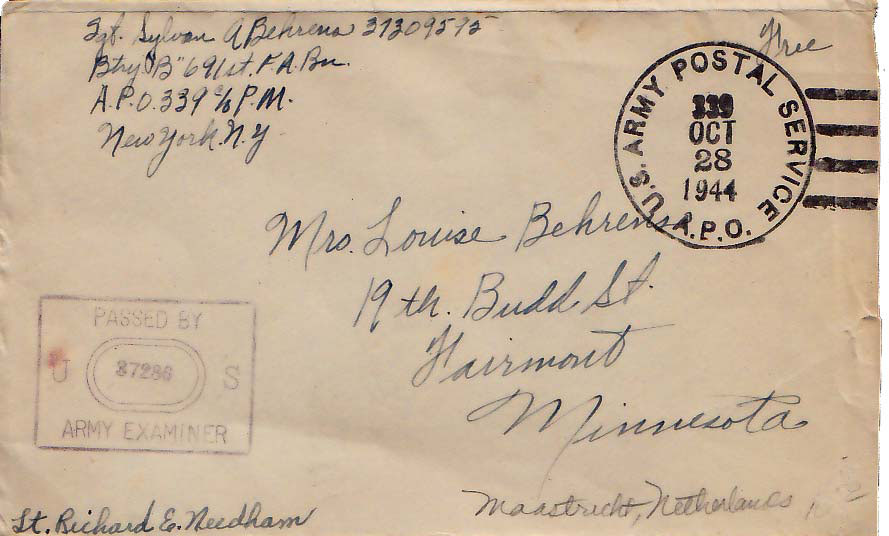 Sgt. Sylvan A Behrens 37309595
Btry "B" 691st. F.A.Bn.
A.P.O. 339 c/o P.M.
New York. N.Y.
Free
U.S. ARMY POSTAL SERVICE
339
OCT
28
1944
A.P.O.
Mrs. Louise Behrens
19 th. Budd St.
Fairmont
Minnesota
PASSED BY
U 37286 S
ARMY EXAMINER
Lt. Richard E. Needham
Maastricht, Netherlands